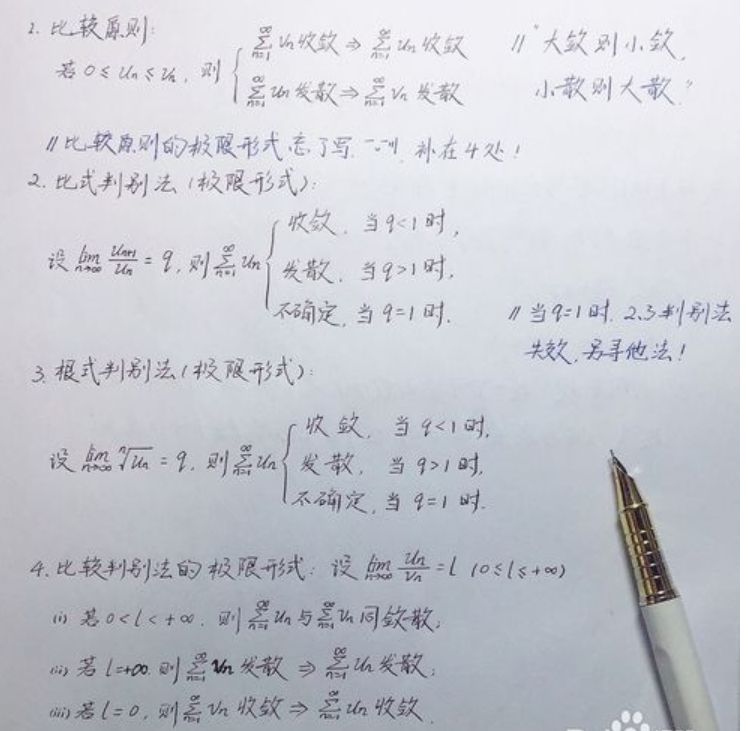 1. 比较原则:
若 0 ≤ Un ≤ Vn, 则 { ∑_{n=1}^∞ Vn 收敛 ⇒ ∑_{n=1}^∞ Un 收敛 // "大敛则小敛,
∑_{n=1}^∞ Un 发散 ⇒ ∑_{n=1}^∞ Vn 发散 小散则大散."
// 比较原则的极限形式忘了写, 补在4处!
2. 比式判别法(极限形式):
设 lim_{n→∞} U_{n+1}/Un = q, 则 ∑_{n=1}^∞ Un { 收敛, 当 q<1 时,
发散, 当 q>1 时,
不确定, 当 q=1 时. // 当 q=1 时, 2.3 判别法
失效, 另寻他法!
3. 根式判别法(极限形式):
设 lim_{n→∞} ⁿ√Un = q, 则 ∑_{n=1}^∞ Un { 收敛, 当 q<1 时,
发散, 当 q>1 时,
不确定, 当 q=1 时.
4. 比较判别法的极限形式: 设 lim_{n→∞} Un/Vn = l (0≤l≤+∞)
(i) 若 0<l<+∞, 则 ∑_{n=1}^∞ Un 与 ∑_{n=1}^∞ Vn 同敛散;
(ii) 若 l=+∞, 则 ∑_{n=1}^∞ Vn 发散 ⇒ ∑_{n=1}^∞ Un 发散;
(iii) 若 l=0, 则 ∑_{n=1}^∞ Vn 收敛 ⇒ ∑_{n=1}^∞ Un 收敛.